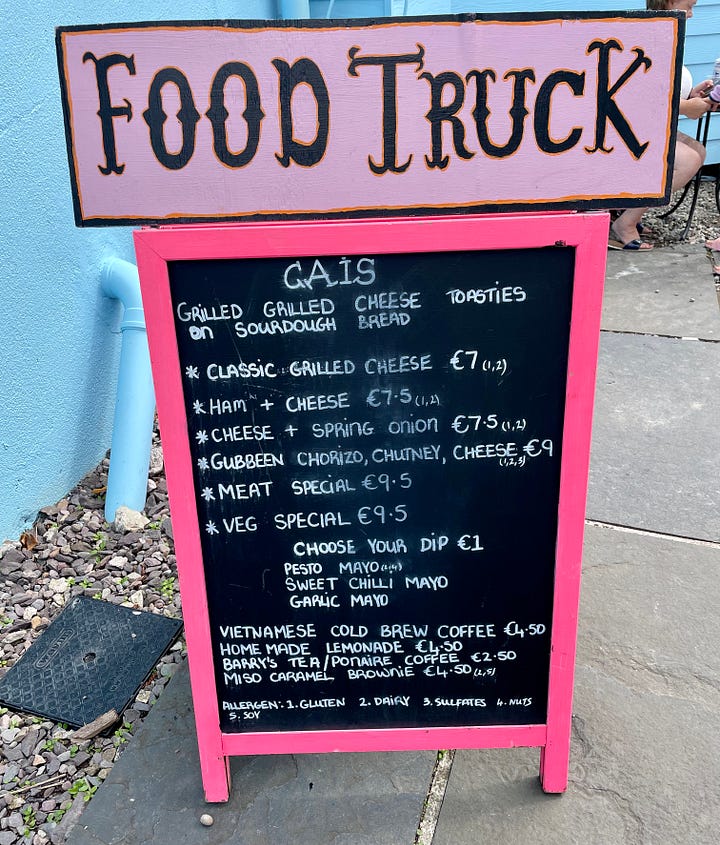 FOOD TRUCK
CAIS
GRILLED GRILLED CHEESE TOASTIES
ON SOURDOUGH BREAD
* CLASSIC GRILLED CHEESE €7 (1,2)
* HAM + CHEESE €7.5 (1,2)
* CHEESE + SPRING ONION €7.5 (1,2)
* GUBBEEN CHORIZO, CHUTNEY, CHEESE €9
(1,2,3)
* MEAT SPECIAL €9.5
* VEG SPECIAL €9.5
CHOOSE YOUR DIP €1
PESTO MAYO
SWEET CHILLI MAYO
GARLIC MAYO
VIETNAMESE COLD BREW COFFEE €4.50
HOME MADE LEMONADE €4.50
BARRY'S TEA/PONAIRE COFFEE €2.50
MISO CARAMEL BROWNIE €4.50
ALLERGEN: 1. GLUTEN 2. DAIRY 3. SULFATES 4. NUTS
5. SOY